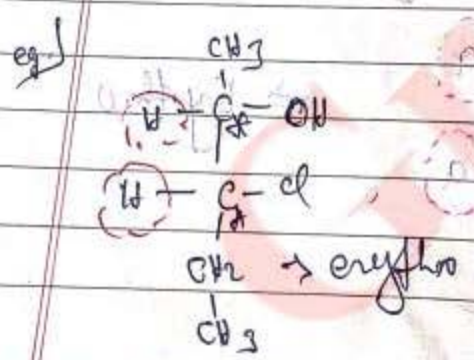 eg)
CH3
H - C* - OH
H - C* - Cl
CH2 → erythro
CH3